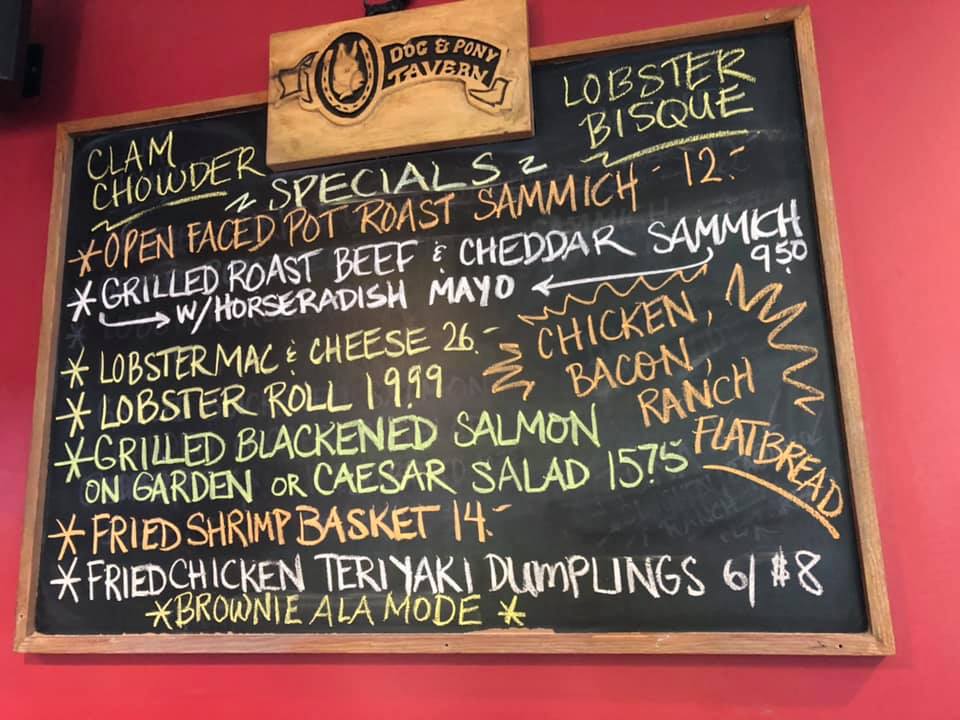 DOG & PONY
TAVERN
CLAM
CHOWDER
LOBSTER
BISQUE
~ SPECIALS ~
* OPEN FACED POT ROAST SAMMICH - 12.-
* GRILLED ROAST BEEF & CHEDDAR SAMMICH
9.50
→ W/HORSERADISH MAYO ←
* LOBSTER MAC & CHEESE 26.-
* LOBSTER ROLL 19.99
* GRILLED BLACKENED SALMON
ON GARDEN OR CAESAR SALAD 15.75
* FRIED SHRIMP BASKET 14.-
* FRIED CHICKEN TERIYAKI DUMPLINGS 6/$8
* BROWNIE ALA MODE *
CHICKEN,
BACON,
RANCH
FLATBREAD